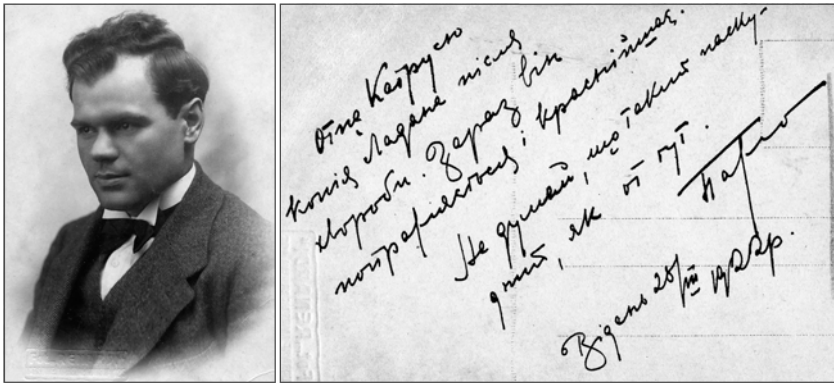 Катрусю
копія Ладана після
хвороби. Зараз він
поправляється і краснійшає.
Не думай, що такий паску-
дний, як от тут.
Павло
Відень 28/III 1922р.